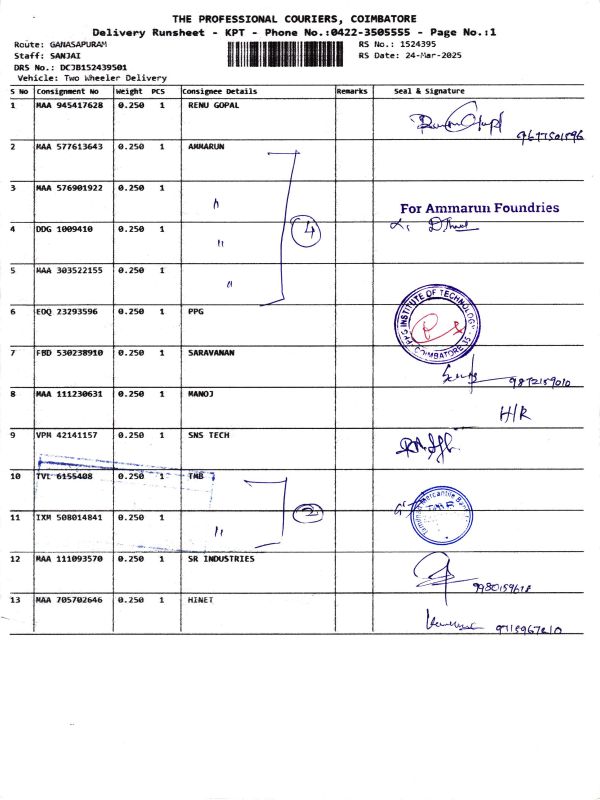 THE PROFESSIONAL COURIERS, COIMBATORE
Delivery Runsheet - KPT - Phone No.:0422-3505555 - Page No.:1
Route: GANASAPURAM
RS No.: 1524395
Staff: SANJAI
RS Date: 24-Mar-2025
DRS No.: DCJB152439501
Vehicle: Two Wheeler Delivery
S No Consignment No Weight PCS Consignee Details Remarks Seal & Signature
1 MAA 945417628 0.250 1 RENU GOPAL
2 MAA 577613643 0.250 1 AMMARUN
3 MAA 576901922 0.250 1 "
For Ammarun Foundries
4 DDG 1009410 0.250 1 " 4
5 MAA 303522155 0.250 1 "
6 EDQ 23293596 0.250 1 PPG
PPG INSTITUTE OF TECHNOLOGY COIMBATORE 35
7 FBD 530238910 0.250 1 SARAVANAN
9872159010
8 MAA 111230631 0.250 1 MANOJ
H/R
9 VPM 42141157 0.250 1 SNS TECH
10 TVL 6155408 0.250 1 TMB
Tamilnad Mercantile Bank
TMB
11 IXM 508014841 0.250 1 " 2
12 MAA 111093570 0.250 1 SR INDUSTRIES
13 MAA 705702646 0.250 1 HINET